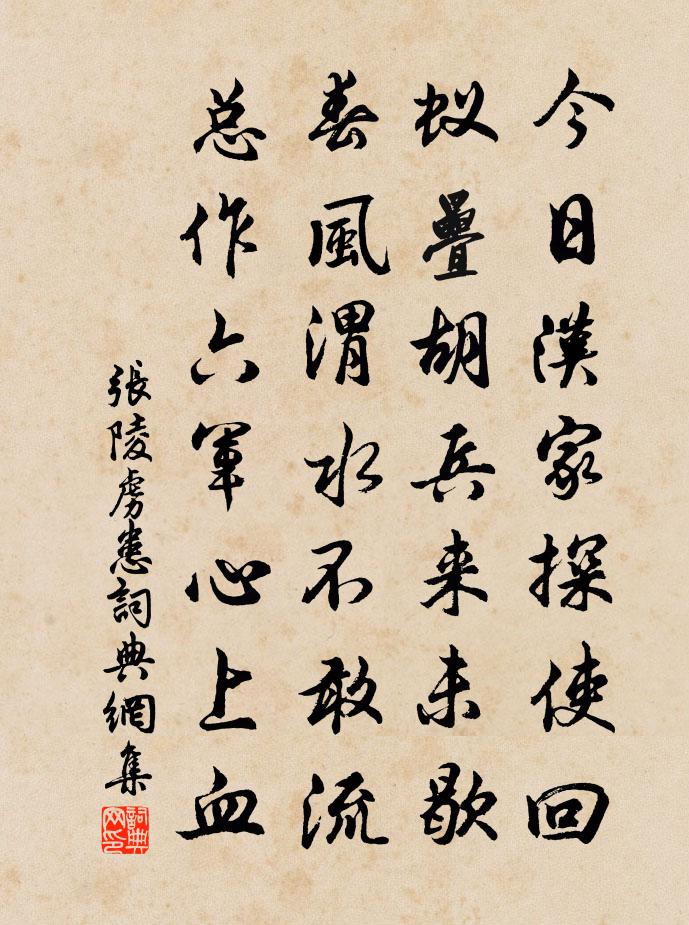 今日漢家探使回
蚁疊胡兵来未歇
春風渭水不敢流
总作六軍心上血
張陵虜患詞典網集
詞典网印